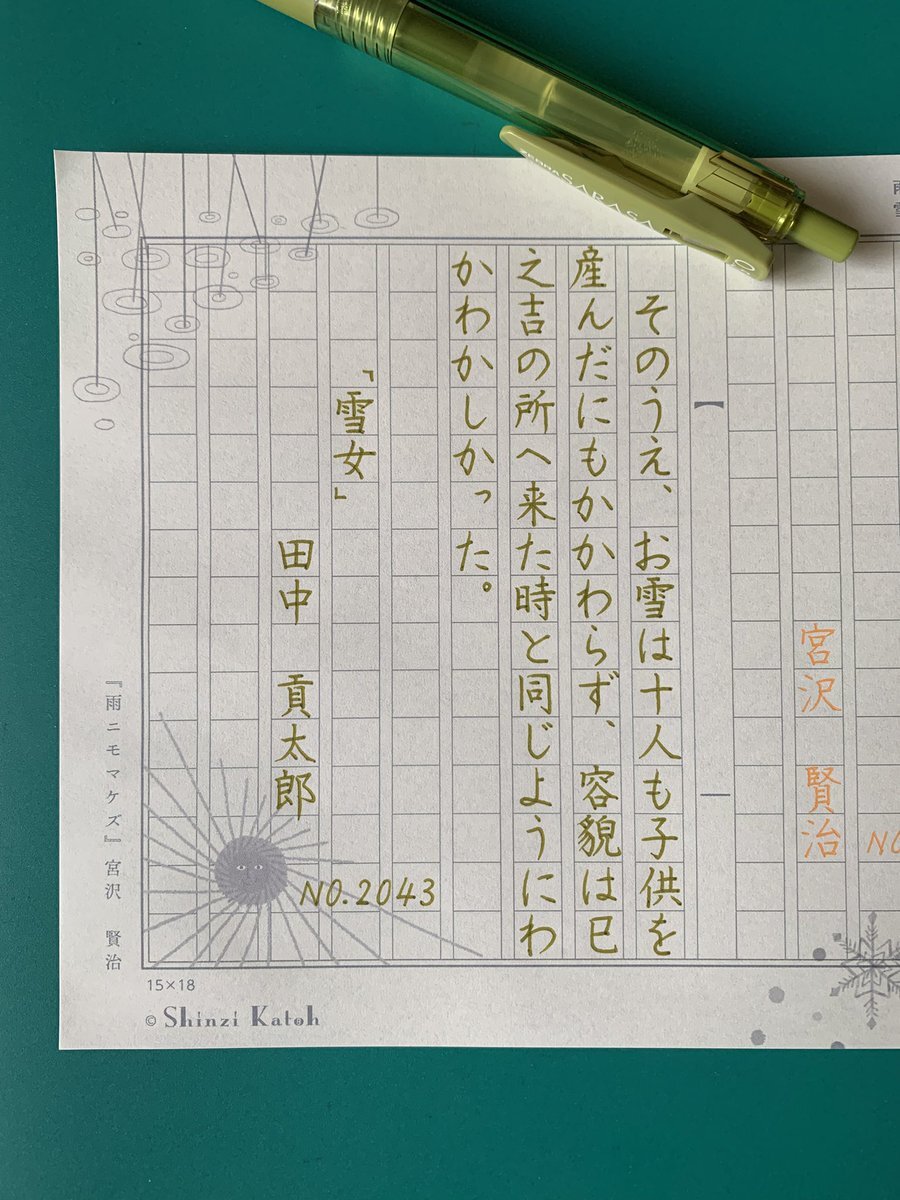 宮沢 賢治
そのうえ、お雪は十人も子供を
産んだにもかかわらず、容貌は巳
之吉の所へ来た時と同じようにわ
かわかしかった。
「雪女」
田中 貢太郎
NO.2043
『雨ニモマケズ』宮沢 賢治
15×18
© Shinzi Katoh
ZEBRA SARASA